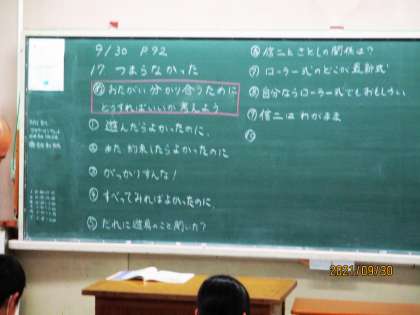 9/30 P92
17 つまらなかった
め おたがい分かり合うために
どうすればいいか考えよう
① 遊んだらよかったのに、
② また約束したらよかったのに
③ がっかりすんな!
④ すべってみればよかったのに、
⑤ だれに遊具のこと聞いた?
⑥ 信二とさとしの関係は?
⑦ ローラー式のどこが最新式
⑧ 自分ならローラー式でもおもしろい
⑨ 信二はわがまま
⑩
2021/09/30